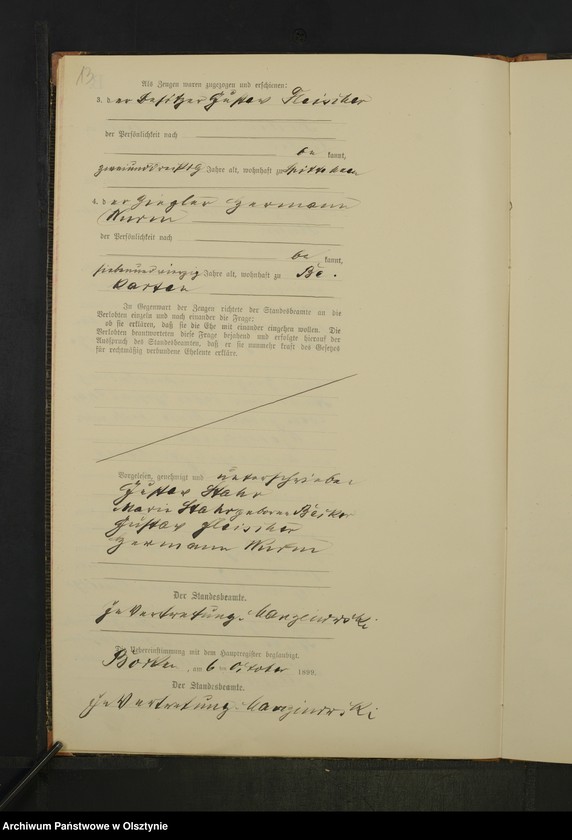 13
Als Zeugen waren zugezogen und erschienen:
3. der Besitzer Gustav Fleischer
der Persönlichkeit nach
be kannt,
zweiunddreißig Jahre alt, wohnhaft zu
4. der Ziegler Hermann
Wurm
der Persönlichkeit nach
be kannt,
siebenundvierzig Jahre alt, wohnhaft zu
In Gegenwart der Zeugen richtete der Standesbeamte an die
Verlobten einzeln und nach einander die Frage:
ob sie erklären, daß sie die Ehe mit einander eingehen wollen. Die
Verlobten beantworteten diese Frage bejahend und erfolgte hierauf der
Ausspruch des Standesbeamten, daß er sie nunmehr kraft des Gesetzes
für rechtmäßig verbundene Eheleute erkläre.
Vorgelesen, genehmigt und unterschrieben
Gustav Stahr
Marie Stahr geborene
Gustav Fleischer
Hermann Wurm
Der Standesbeamte.
In Vertretung:
Die Uebereinstimmung mit dem Hauptregister beglaubigt.
Borken, am 6 ten Oktober 1899.
Der Standesbeamte.
In Vertretung
Archiwum Państwowe w Olsztynie